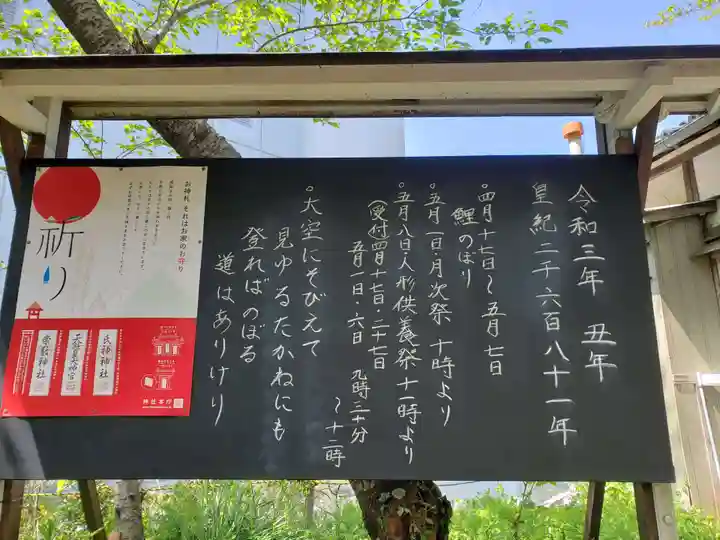 令和三年 丑年
皇紀二千六百八十一年
○四月十七日〜五月七日
鯉のぼり
○五月一日・月次祭 十時より
○五月八日人形供養祭十一時より
(受付四月十七日・二十七日
五月一日・六日 九時三十分
〜十二時
○大空にそびえて
見ゆるたかねにも
登ればのぼる
道はありけり
祈り
お神札、それはお家のお守り
氏神神社
天照皇大神宮
崇敬神社
神社本庁